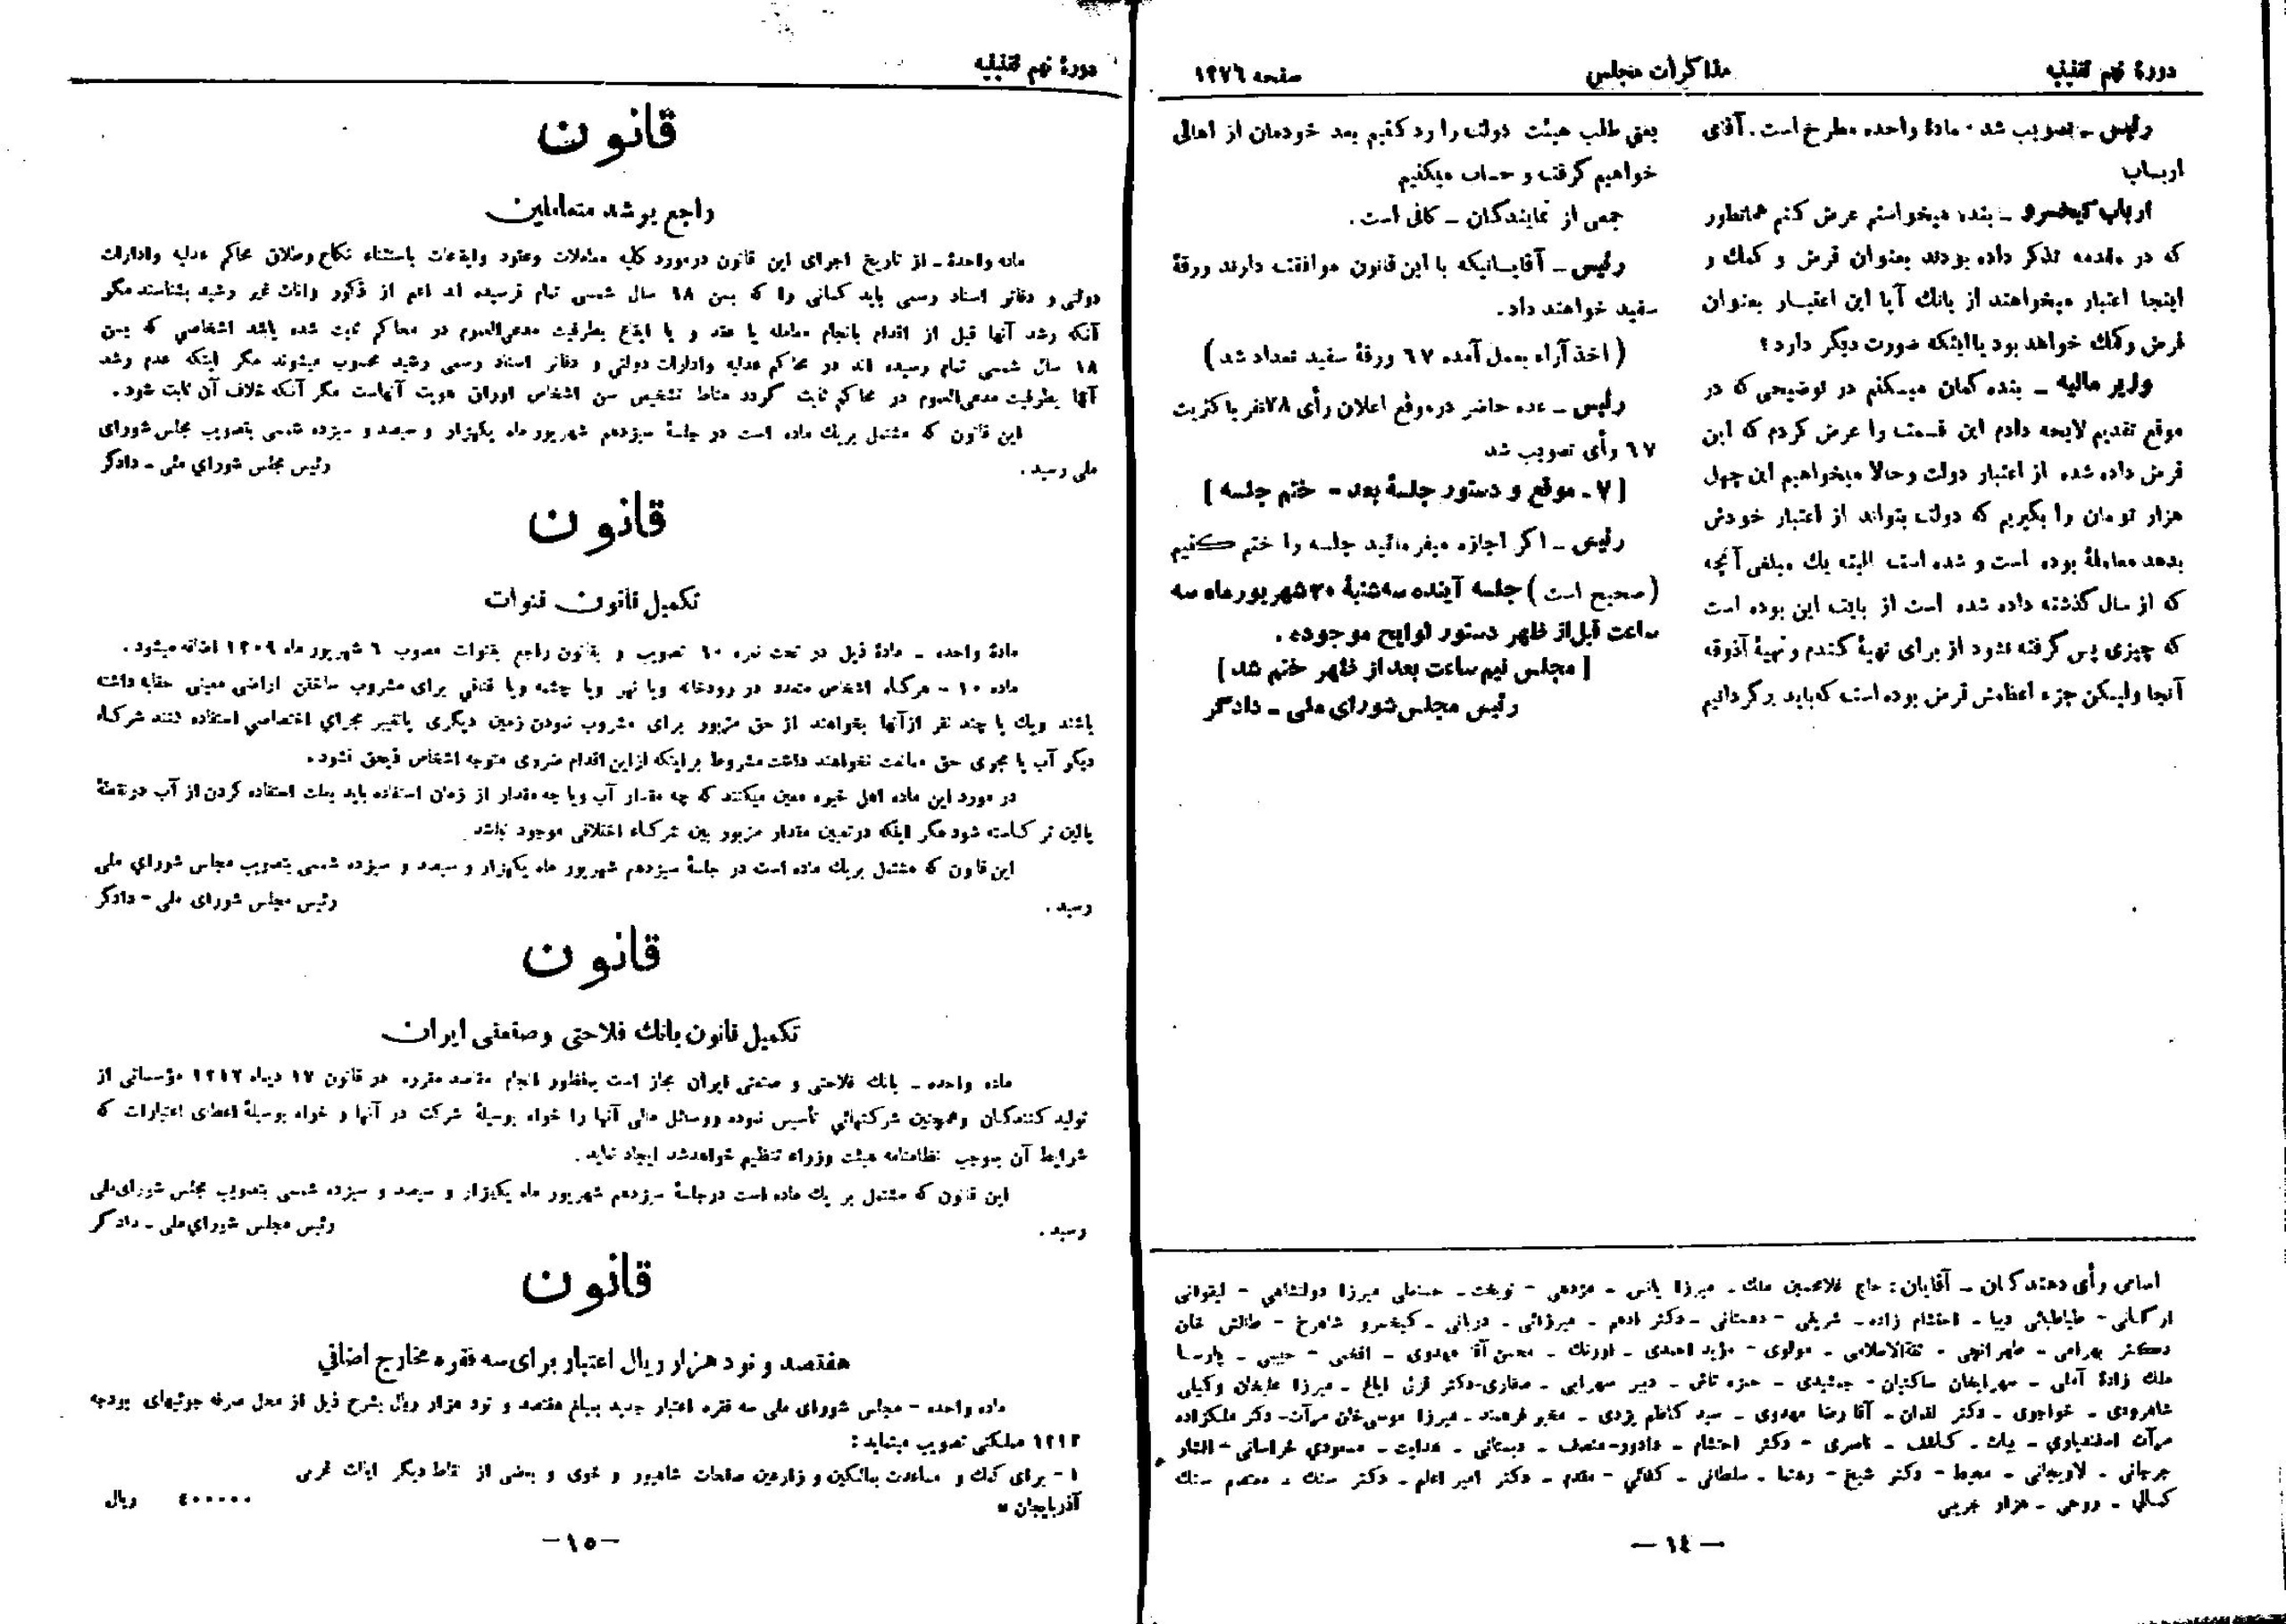 دورهٔ نهم تقنینیه
مذاکرات مجلس
صفحه ١٢٧٦
رئیس ـ تصویب شد . مادهٔ واحده مطرح است . آقای
ارباب
ارباب کیخسرو ـ بنده میخواستم عرض کنم همانطور
که در مقدمه تذکر داده بودند بعنوان قرض و کمك و
اینجا اعتبار میخواهند از بانك آیا این اعتبـار بعنوان
قرض و کمك خواهد بود یا اینکه صورت دیگر دارد ؟
وزیر مالیه ـ بنده گمان میسکنم در توضیحی که در
موقع تقدیم لایحه دادم این قسمت را عرض کردم که این
قرض داده شده از اعتبار دولت وحالا میخواهیم این چهل
هزار تومان را بگیریم که دولت بتواند از اعتبار خودش
بدهد معاملهٔ بوده است و شده است البته یك مبلغی آنچه
که از سال گذشته داده شده است از بابت این بوده است
که چیزی پس گرفته نشود از برای تهیهٔ گندم و تهیهٔ آذوقه
آنجا ولیکن جزء اعظمش قرض بوده است که باید برگردانیم
یعنی طلب هیئت دولت را رد کنیم بعد خودمان از اهالی
خواهیم گرفت و حساب میکنیم
جمعی از نمایندگان ـ کافی است .
رئیس ـ آقایـانیکه با این قانون موافقت دارند ورقهٔ
سفید خواهند داد .
( اخذ آراء بعمل آمده ٦٧ ورقهٔ سفید تعداد شد )
رئیس ـ عده حاضر در موقع اعلان رأی ٧٨ نفر با کثریت
٦٧ رأی تصویب شد
[ ٧ ـ موقع و دستور جلسهٔ بعد ـ ختم جلسه ]
رئیس ـ اگر اجازه میفرمائید جلسه را ختم کنیم
( صحیح است ) جلسه آینده سه‌شنبهٔ ٢٠ شهریور ماه سه
ساعت قبل از ظهر دستور لوایح موجوده .
[ مجلس نیم ساعت بعد از ظهر ختم شد ]
رئیس مجلس شورای ملی ـ دادگر
اسامی رأی دهندگان ـ آقایان : حاج غلامحسین ملك ـ میرزا یانس ـ مژدهی ـ نوبخت ـ حسنعلی میرزا دولتشاهی ـ لیقوانی
ارکـانی ـ طباطبائی دیبا ـ احتشام زاده ـ شریفی ـ دهستانی ـ دکتر ادهم ـ میرزائی ـ دربانی ـ کیخسرو شاهرخ ـ طالش خان
دکتر بهرامی ـ طهرانچی ـ ثقةالاسلامی ـ مولوی ـ مؤید احمدی ـ اورنك ـ محسن آقا مهدوی ـ افخمی ـ حبیبی ـ پارسـا
ملك زادهٔ آملی ـ سهرابخان ساکنیان ـ جمشیدی ـ حمزه تاش ـ دبیر سهرابی ـ صفاری ـ دکتر قزل ایاغ ـ میرزا علیخان وکیلی
شاهرودی ـ خواجوی ـ دکتر لقمان ـ آقا رضا مهدوی ـ سید کاظم یزدی ـ مخبر فرهمند ـ میرزا موسی‌خان مرآت ـ دکتر ملکزاده
مرآت اسفندیاری ـ بیات ـ کـاشف ـ ناصری ـ دکتر احتشام ـ دادور ـ منصف ـ دبستانی ـ هدایت ـ مسعودی خراسانی ـ افشار
جرجانی ـ لاریجانی ـ محیط ـ دکتر شیخ ـ رهنما ـ سلطانی ـ کفائی ـ مقدم ـ دکتر امیر اعلم ـ دکتر سنك ـ معتصم سنك
کمالی ـ روحی ـ هزار جریبی
— ١٤ —
دورهٔ نهم تقنینیه
قانون
راجع برشد متعاملین
ماده واحدهٔ ـ از تاریخ اجرای این قانون در مورد کلیه معاملات وعقود وایقاعات باستثناء نکاح وطلاق محاکم عدلیه وادارات
دولتی و دفاتر اسناد رسمی باید کسانی را که بسن ١٨ سال شمسی تمام نرسیده اند اعم از ذکور واناث غیر رشید بشناسند مگر
آنکه رشد آنها قبل از اقدام بانجام معامله یا عقد و یا ایقاع بطرفیت مدعی‌العموم در محاکم ثابت شده باشد اشخاصی که بسن
١٨ سال شمسی تمام رسیده اند در محاکم عدلیه وادارات دولتی و دفاتر اسناد رسمی رشید محسوب میشوند مگر اینکه عدم رشد
آنها بطرفیت مدعی‌العموم در محاکم ثابت گردد مناط تشخیص سن اشخاص اوراق هویت آنهاست مگر آنکه خلاف آن ثابت شود .
این قانون که مشتمل بریك ماده است در جلسهٔ سیزدهم شهریور ماه یکهزار و سیصد و سیزده شمسی بتصویب مجلس شورای
ملی رسید . رئیس مجلس شورای ملی ـ دادگر
قانون
تکمیل قانون قنوات
مادهٔ واحده ـ مادهٔ ذیل در تحت نمره ١٠ تصویب و بقانون راجع بقنوات مصوب ٦ شهریور ماه ١٣٠٩ اضافه میشود .
ماده ١٠ ـ هرگاه اشخاص متعدد در رودخانه ویا نهر ویا چشمه ویا قناتی برای مشروب ساختن اراضی معینی حقابه داشته
باشند ویك یا چند نفر از آنها بخواهند از حق مزبور برای مشروب نمودن زمین دیگری یا تغییر مجرای اختصاصی استفاده کنند شرکاء
دیگر آب یا مجری حق ممانعت نخواهند داشت مشروط براینکه از این اقدام ضرری متوجه اشخاص ذیحق نشود .
در مورد این ماده اهل خبره معین میکنند که چه مقدار آب ویا چه مقدار از زمان استفاده باید بعلت استفاده کردن از آب در نقطهٔ
پائین تر کاسته شود مگر اینکه در تعیین مقدار مزبور بین شرکاء اختلافی موجود نباشد
این قانون که مشتمل بریك ماده است در جلسهٔ سیزدهم شهریور ماه یکهزار و سیصد و سیزده شمسی بتصویب مجلس شورای ملی
رسید . رئیس مجلس شورای ملی ـ دادگر
قانون
تکمیل قانون بانك فلاحتی و صنعتی ایران
ماده واحده ـ بانك فلاحتی و صنعتی ایران مجاز است بمنظور انجام مقاصد مقرره در قانون ١٧ دیماه ١٣١٢ مؤسساتی از
تولید کنندگان وهمچنین شرکتهائی تأسیس نموده ووسائل مالی آنها را خواه بوسیلهٔ شرکت در آنها و خواه بوسیلهٔ اعطای اعتبارات که
شرایط آن بموجب نظامنامه هیئت وزراء تنظیم خواهدشد ایجاد نماید .
این قانون که مشتمل بر یك ماده است در جلسهٔ سیزدهم شهریور ماه یکهزار و سیصد و سیزده شمسی بتصویب مجلس شورای‌ملی
رسید . رئیس مجلس شورای‌ملی ـ دادگر
قانون
هفتصد و نود هزار ریال اعتبار برای سه فقره مخارج اضافی
ماده واحده ـ مجلس شورای ملی سه فقره اعتبار جدید بمبلغ هفتصد و نود هزار ریال بشرح ذیل از محل صرفه جوئیهای بودجه
١٣١٢ مملکتی تصویب مینماید :
١ ـ برای کمك و مساعدت بمالکین و زارعین صفحات شاهپور و خوی و بعضی از نقاط دیگر ایالت غربی
آذربایجان ٤٠٠٠٠٠ ریال
— ١٥ —